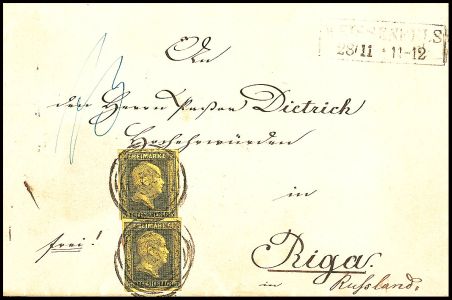 WEISSENFELS
28/11 * 11-12
An
den Herrn Pastor Dietrich
Hochehrwürden
in
FREIMARKE
FREIMARKE
frei!
Riga.
in Russland.